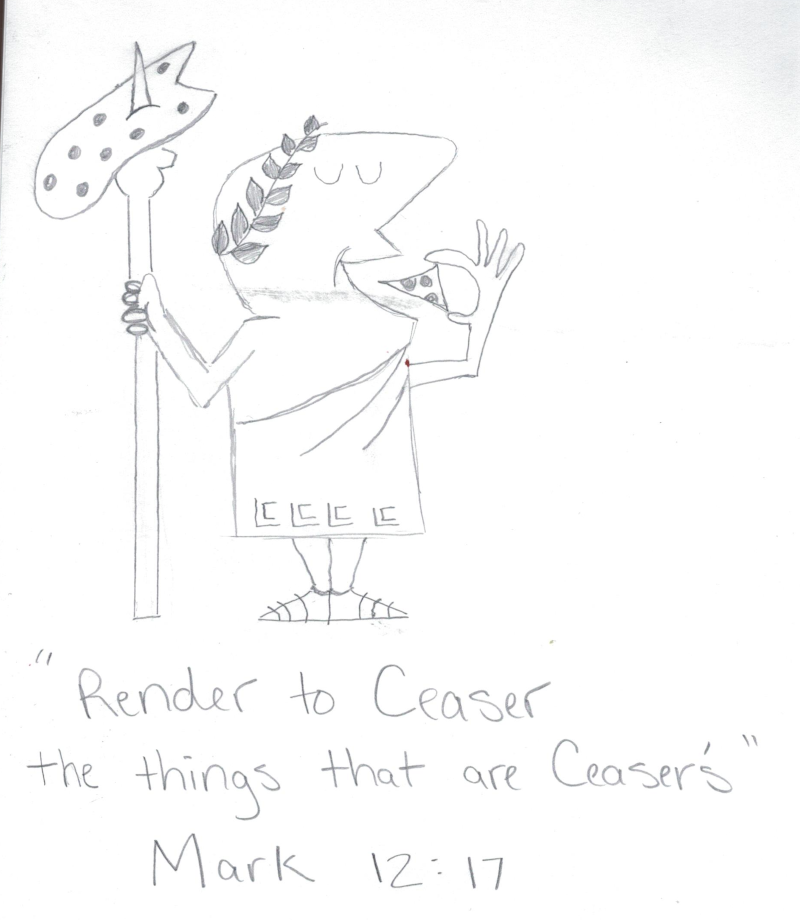 "Render to Ceaser
the things that are Ceaser's"
Mark 12:17